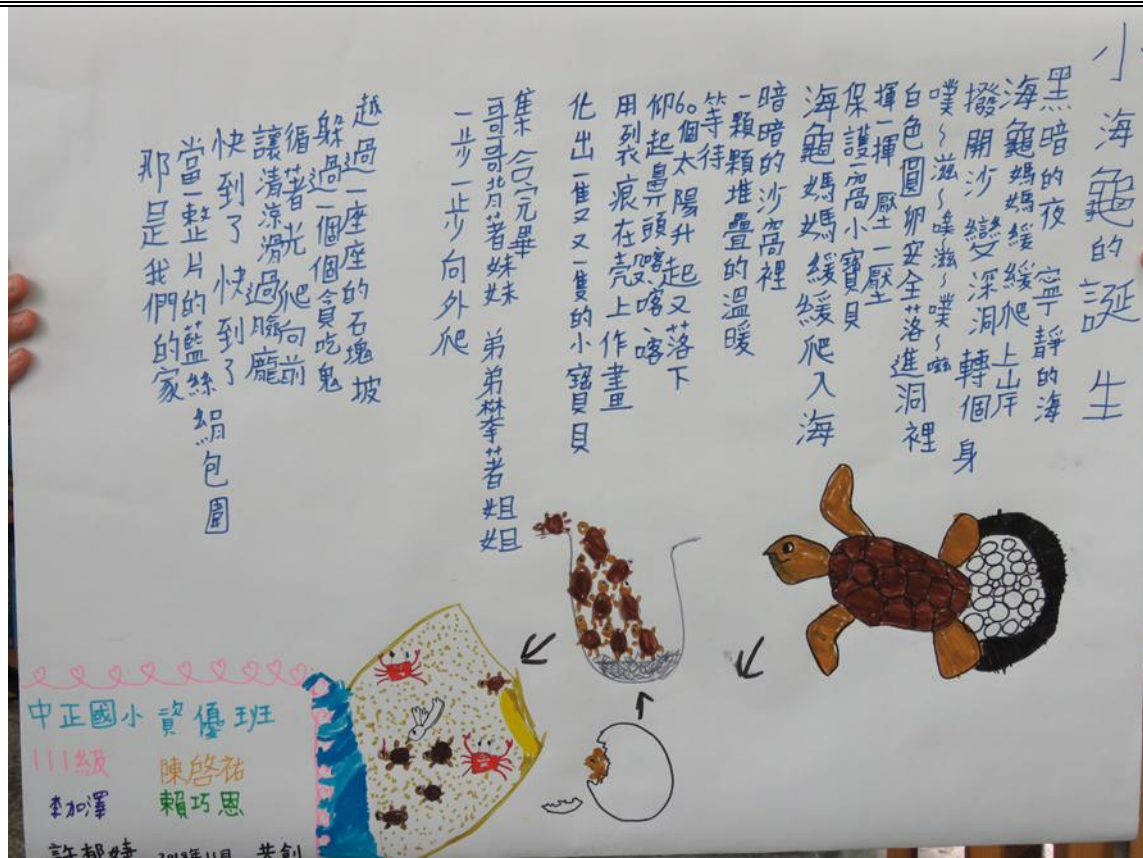 小海龜的誕生
黑暗的夜 寧靜的海
海龜媽媽緩緩爬上岸
撥開沙 變深洞 轉個身
噗~滋~噗~滋~噗~滋
白色圓卵安全落進洞裡
揮一揮 壓一壓
保護一窩小寶貝
海龜媽媽緩緩爬入海
暗暗的沙窩裡
一顆顆堆疊的溫暖
等待
60個太陽升起又落下
仰起鼻頭喀喀喀
用裂痕在殼上作畫
化出一隻又一隻的小寶貝
集合完畢
哥哥背著妹妹 弟弟攀著姐姐
一步一步向外爬
越過一座座的石塊坡
躲過一個個貪吃鬼
循著光爬向前
讓清涼滑過臉龐
快到了 快到了
當一整片的藍絲絹包圍
那是我們的家
中正國小資優班
111級 陳啓祐
李加澤 賴巧恩
許郁婕 2018年11月 共創